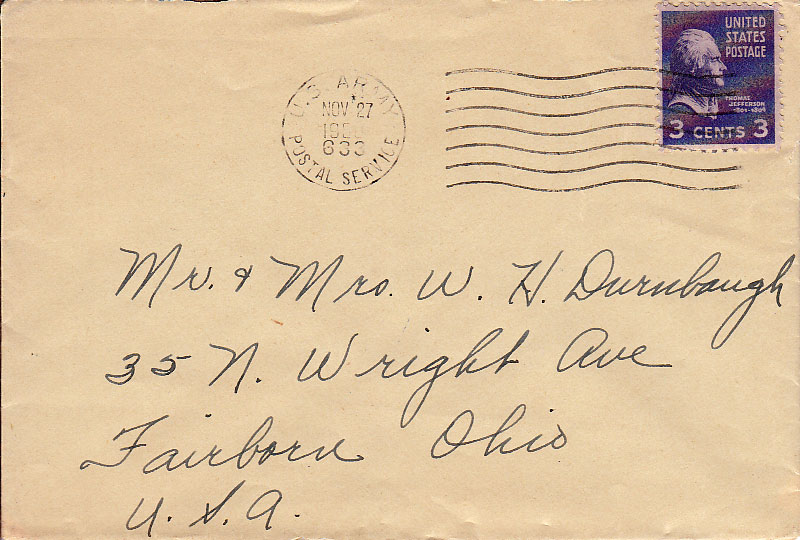 UNITED
STATES
POSTAGE
THOMAS
JEFFERSON
1801-1809
3 CENTS 3
U.S. ARMY
NOV 27
633
POSTAL SERVICE
Mr. & Mrs. W. H. Durnbaugh
35 N. Wright Ave
Fairborn Ohio
U. S. A.